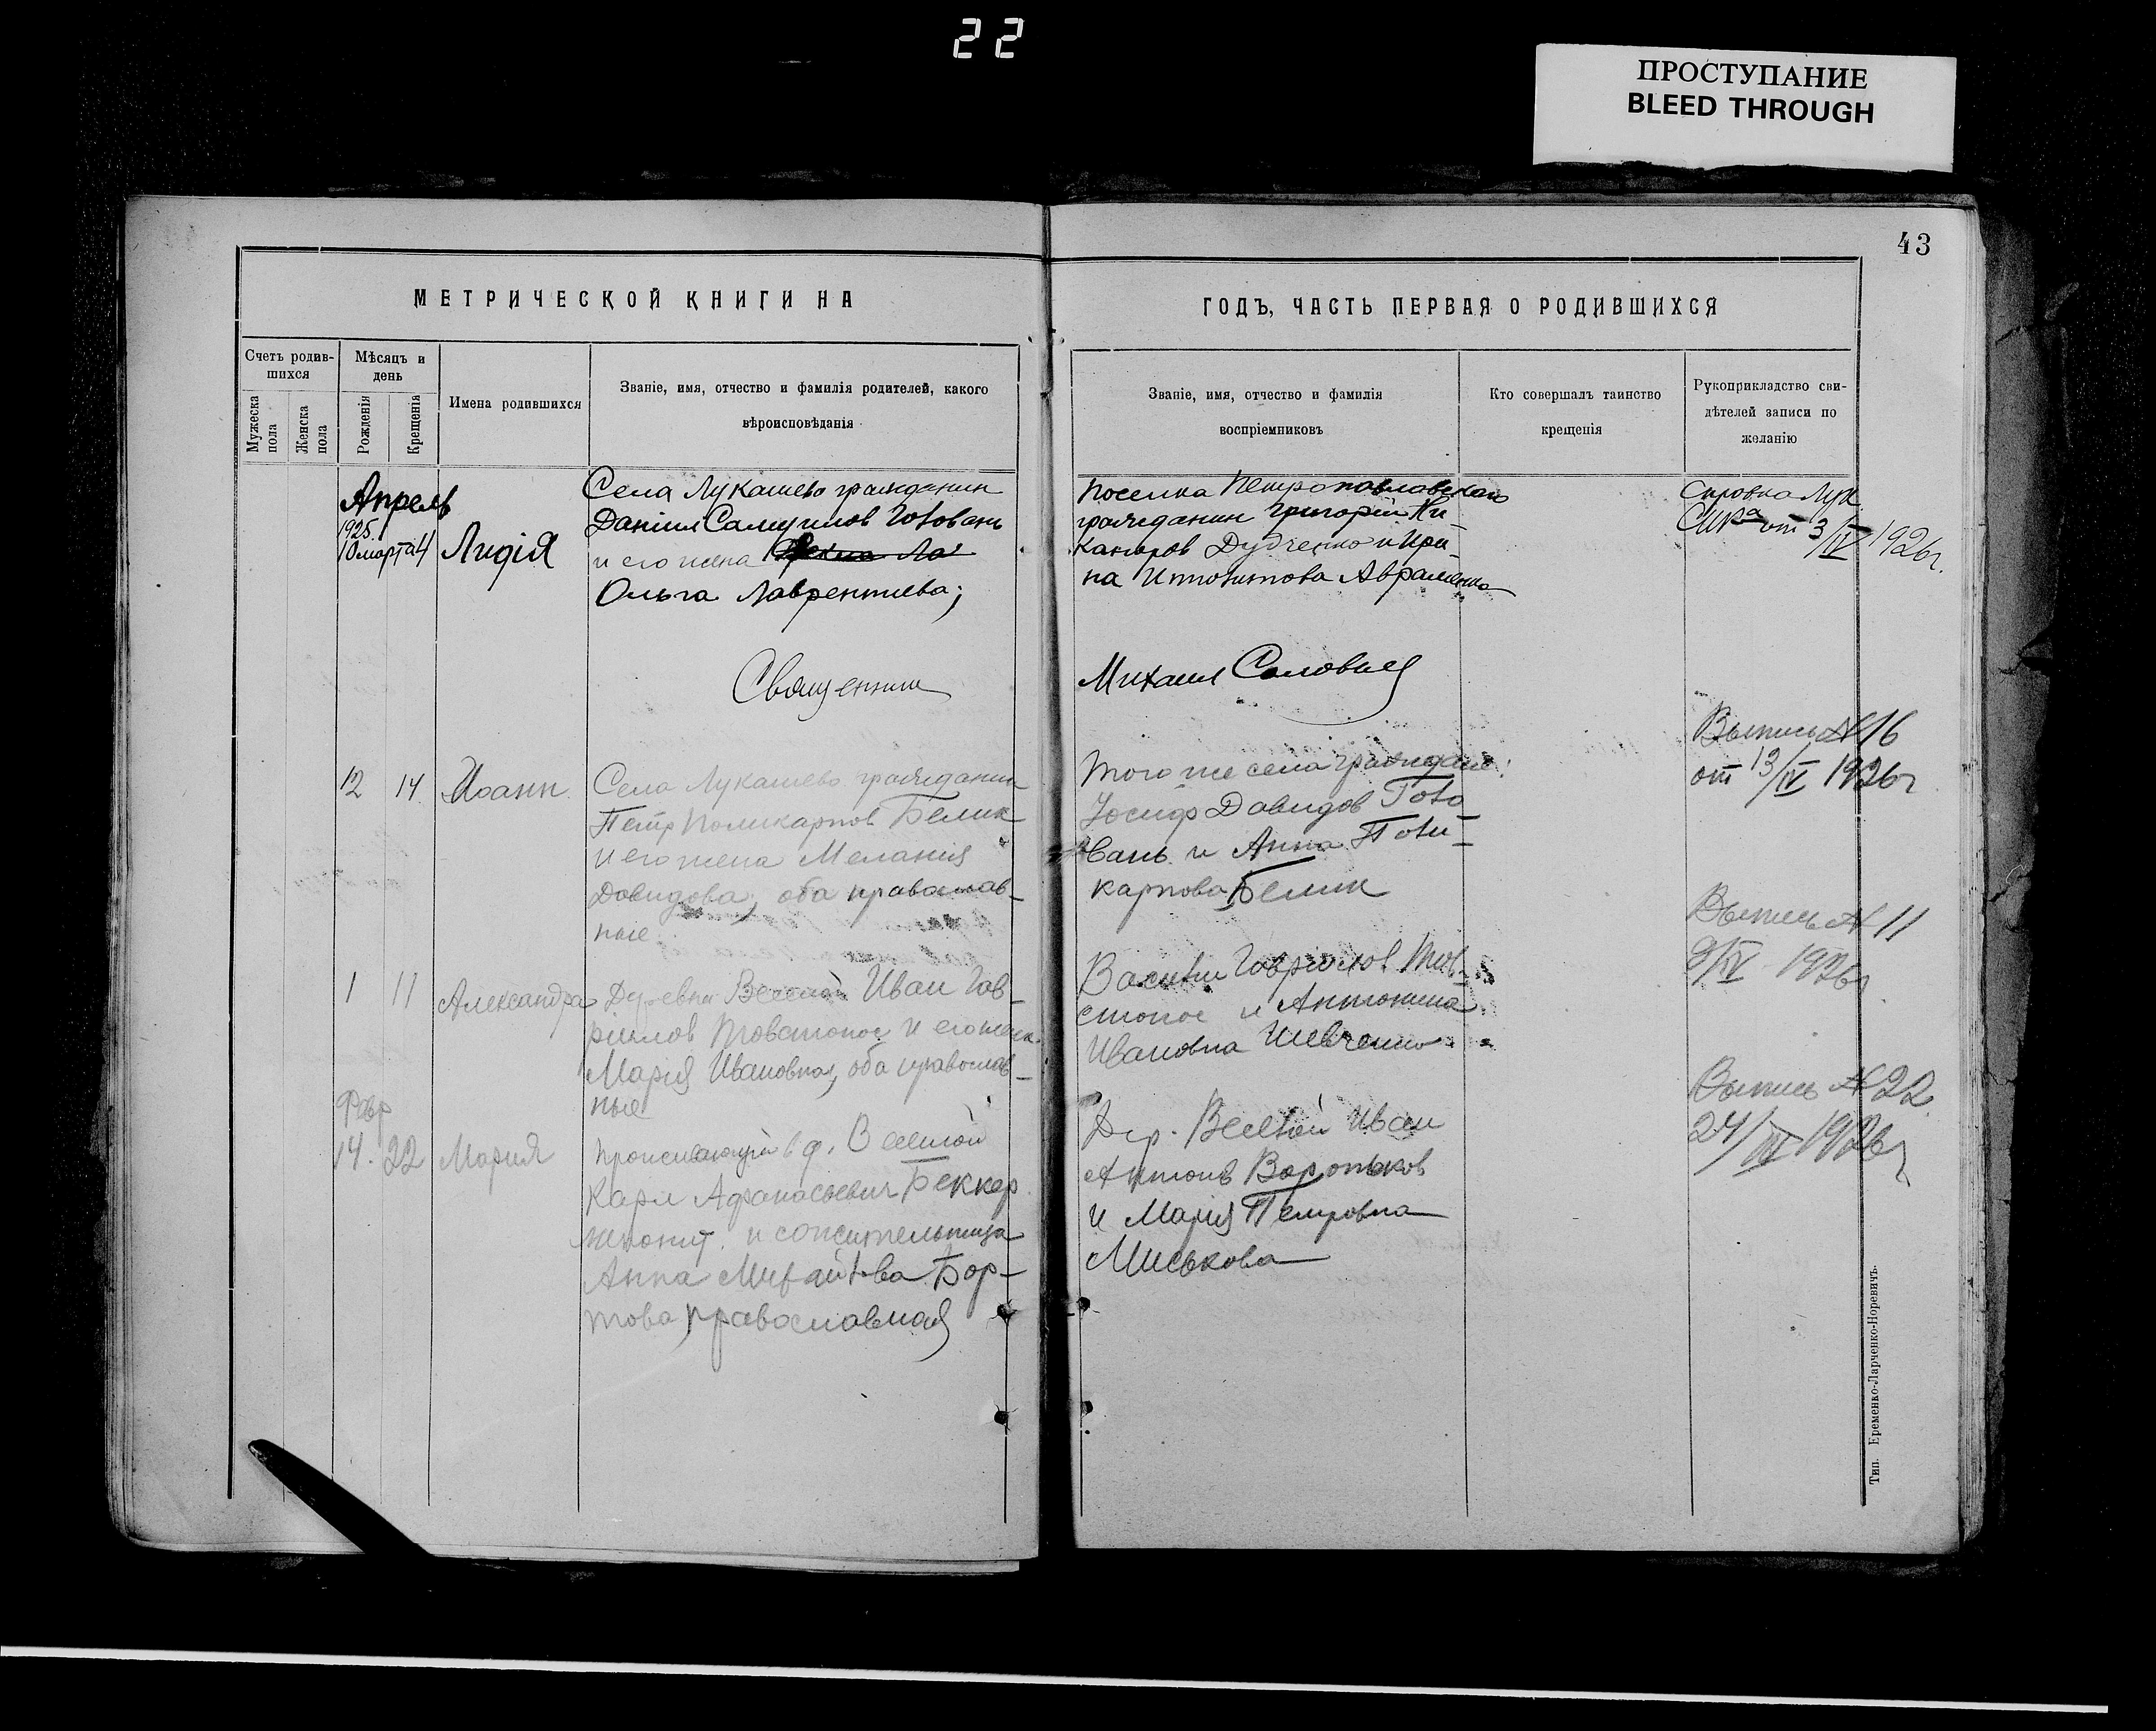 22
ПРОСТУПАНИЕ
BLEED THROUGH
43
МЕТРИЧЕСКОЙ КНИГИ НА
ГОДЪ, ЧАСТЬ ПЕРВАЯ О РОДИВШИХСЯ
Счетъ родив-
шихся
Мужеска
пола
Женска
пола
Мѣсяцъ и
день
Рожденія
Крещенія
Имена родившихся
Званіе, имя, отчество и фамилія родителей, какого
вѣроисповѣданія
Званіе, имя, отчество и фамилія
воспріемниковъ
Кто совершалъ таинство
крещенія
Рукоприкладство сви-
дѣтелей записи по
желанію
Апрель
1925.
10 марта 4
Лидія
Села Лукашево гражданин
Даніил Самуилов Головань
и его жена
Ольга Лаврентиева;
поселка Петропавловского
гражданин Григорій Ни-
каноров Дудченко и Ири-
на Ипполитова Авраменко
Справка Лук.
от 3/IV 1926г.
Священник
Михаил Соловьев
12 14
Иоанн
Села Лукашево гражданин
Петр Поликарпов Белик
и его жена Мелания
Давидова, оба православ-
ные
того же села граждане:
Иосиф Давидов Голо-
вань и Анна Поли-
карпова Белик
Выпись № 16
от 13/IV 1926г
1 11
Александра
Деревни Веселой Иван Гав-
риилов Товстонос и его жена
Мария Ивановна, оба православ-
ные
Василий Гавриилов Тов-
стонос и Антонина
Ивановна Шевченко
Выпись № 11
9/IV 1926г.
Февр
14. 22
Мария
в д. Веселой
Карл Афанасьевич Беккер
и сожительница
Анна Михайлова Бор-
това, православная
Дер. Веселой Иван
Антонов Вороньков
и Мария Петровна
Миськова
Выпись № 22
24/ 1926г
Тип. Еременко-Ларченко-Норевичъ.